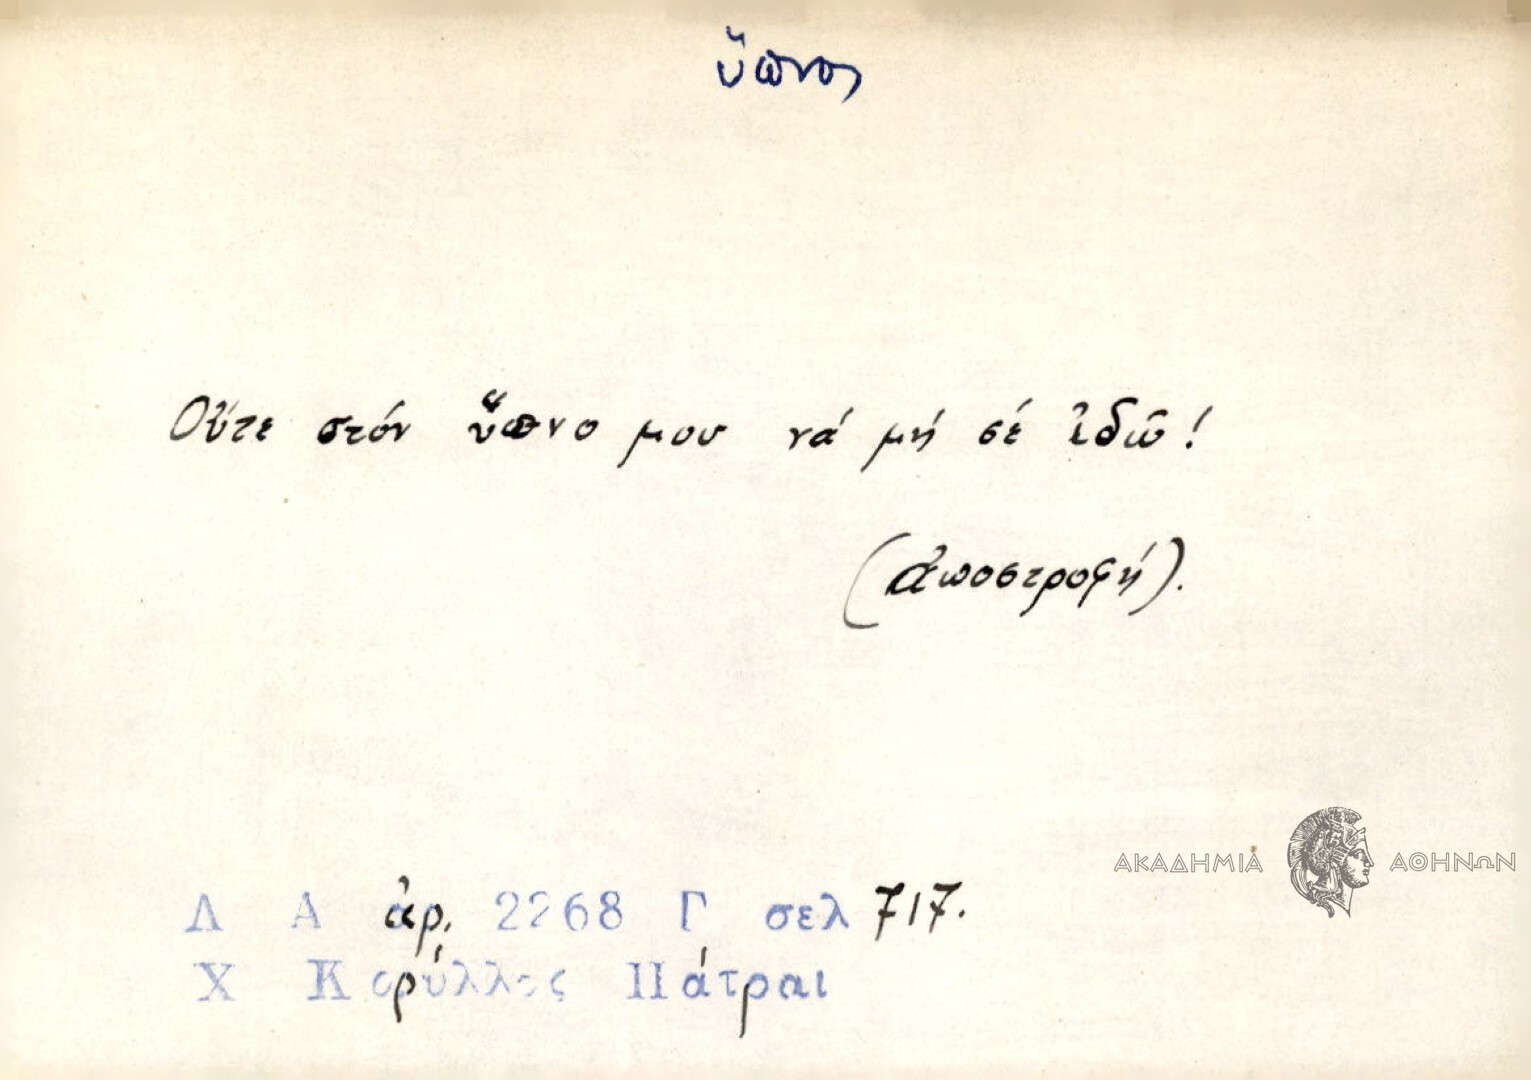 ὕπνος
Οὔτε στόν ὕπνο μου νά μή σέ ἰδῶ!
(ἀποστροφή).
ΑΚΑΔΗΜΙΑ ΑΘΗΝΩΝ
Λ Α ἀρ. 2268 Γ σελ 717.
Χ Κορύλλος Πάτραι